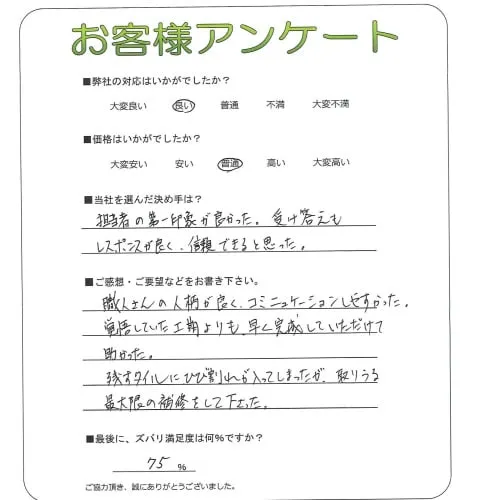 お客様アンケート
■弊社の対応はいかがでしたか？
大変良い 良い 普通 不満 大変不満
■価格はいかがでしたか？
大変安い 安い 普通 高い 大変高い
■当社を選んだ決め手は？
担当者の第一印象が良かった。受け答えも
レスポンスが良く、信頼できると思った。
■ご感想・ご要望などをお書き下さい。
職人さんの人柄が良く、コミニュケーションしやすかった。
覚悟していた工期よりも、早く完成していただけて
助かった。
残すタイルにひび割れが入ってしまったが、取りうる
最大限の補修をして下さった。
■最後に、ズバリ満足度は何％ですか？
75 %
ご協力頂き、誠にありがとうございました。